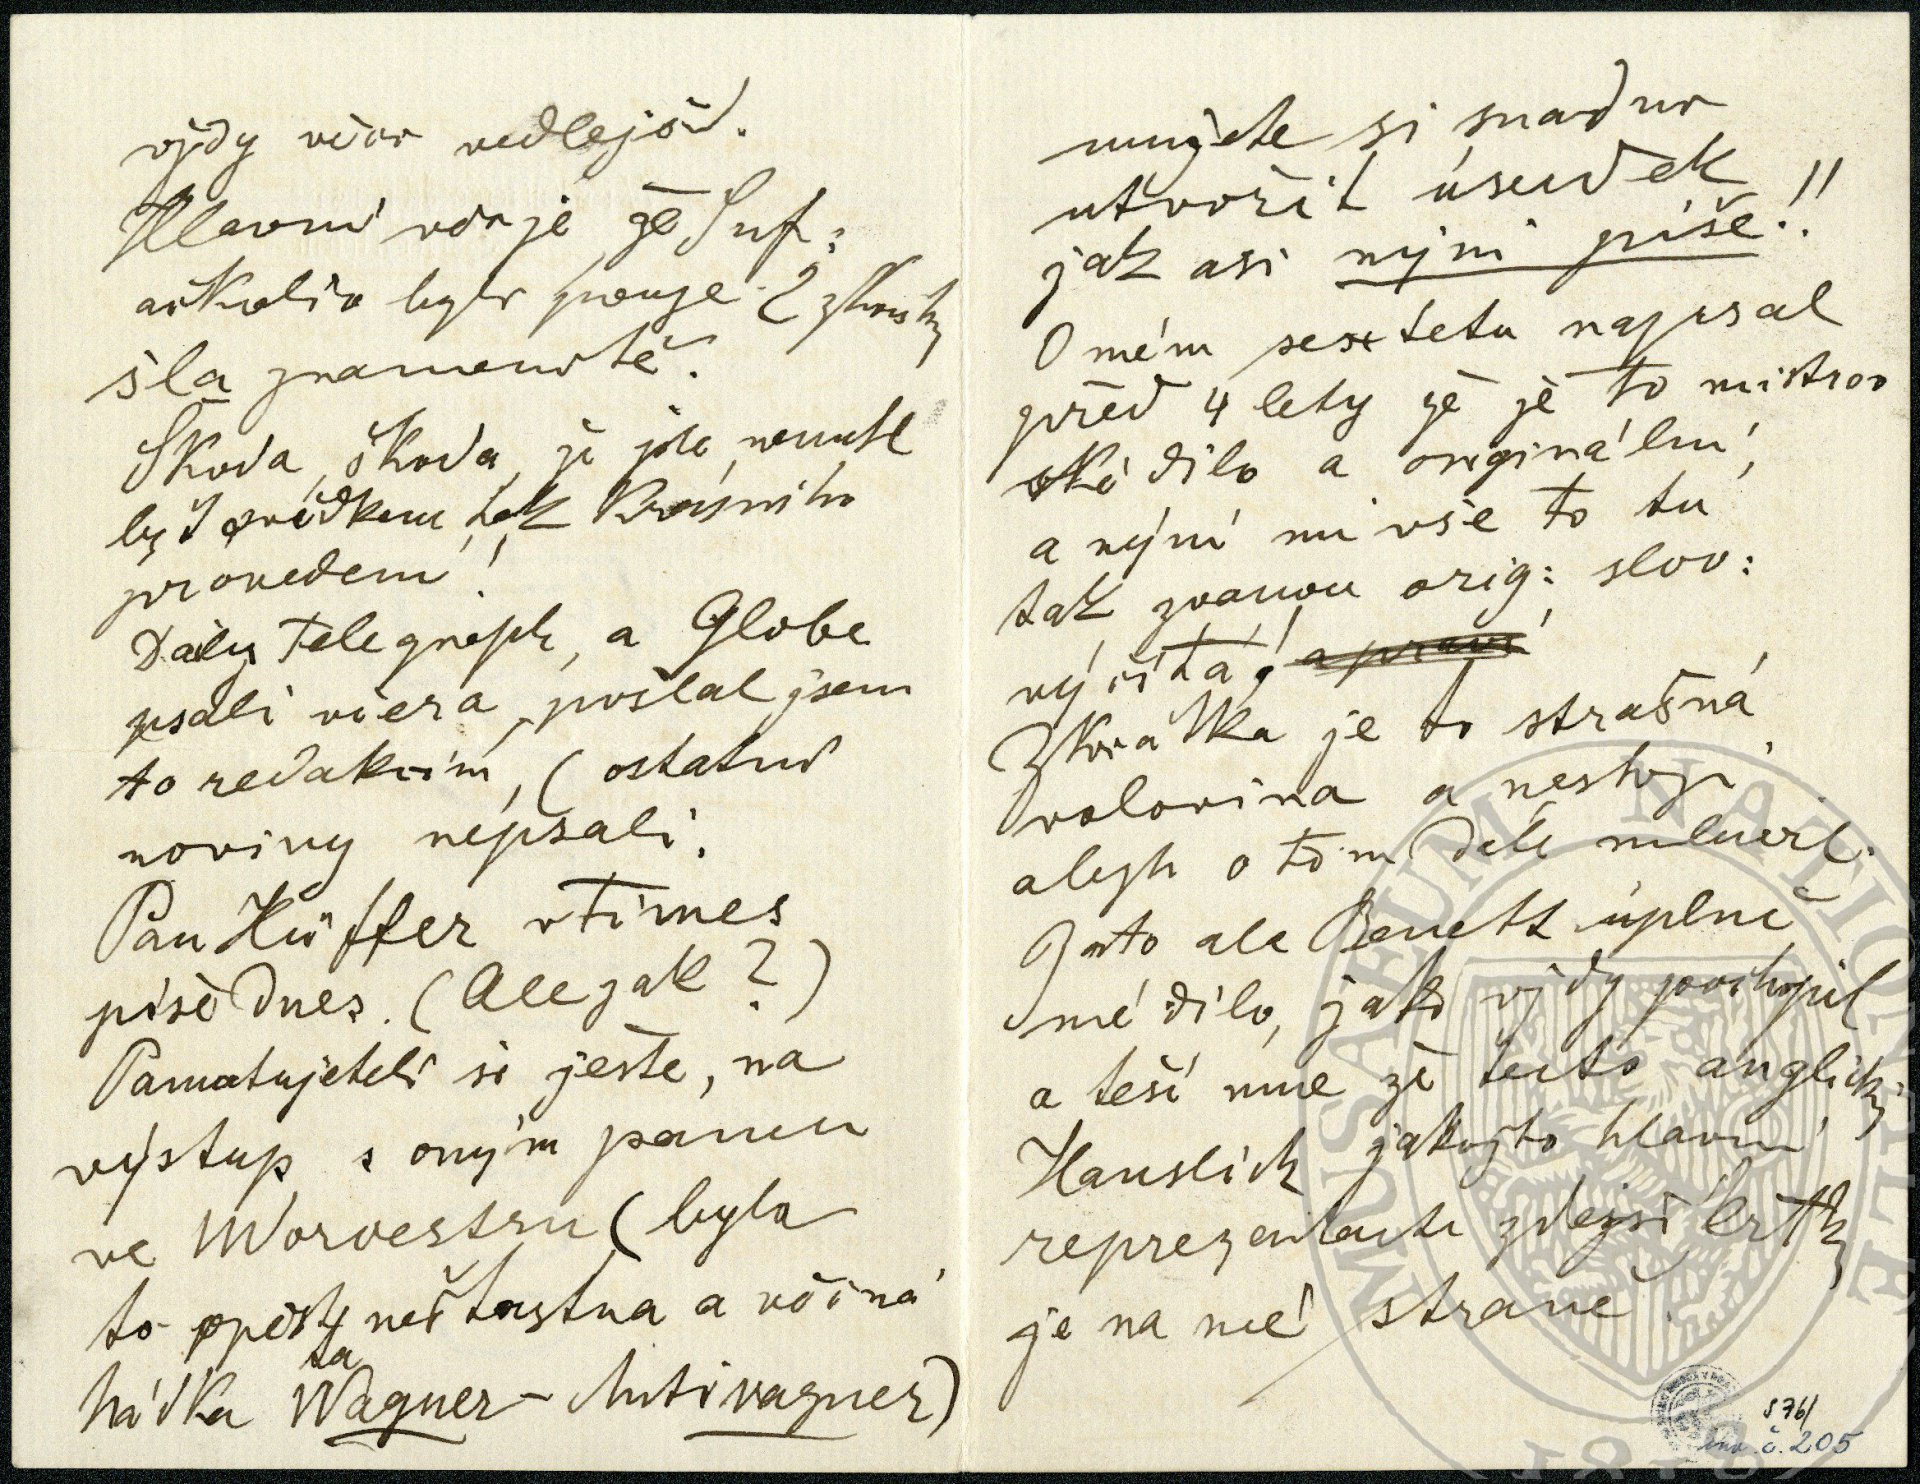 vždy věcí vedlejší.
Hlavní věc je, že Suf:
ačkoliv byly pouze 2 zkoušky
šla znamenitě.
Škoda, škoda, že jste nemohl
být svědkem tak krásného
provedení!
Daily Telegraph, a Globe
psali včera, poslal jsem
to redakcím, (ostatní
noviny nepsali.
Pan Hüffer v Times
píše dnes. (Ale jak?)
Pamatujeteli si ješte, na
výstup s oným panem
ve Worcestru (byla
to opět ta nešťastna a věčná
hádka Wagner – Antiwagner)
mužete si snadno
utvořit úsudek
jak asi nýní píše!!
O mém sextetu napsal
před 4 lety že je to mistrov
ské dílo a originální,
a nýní mi vše to tu
tak zvanou orig: slov:
výčítá! a praví
Zkrátka je to strašná
volovina a nestojí
abych o tom dále mluvil.
Zato ale Benett úplně
mé dílo, jako vždy pochopil
a teší mne že tento anglický
Hanslick jakožto hlavní
reprezentant zdejší kritiky
je na mé straně.
MUSAEUM NATIONALE
1818
S 76/
inv. č. 205